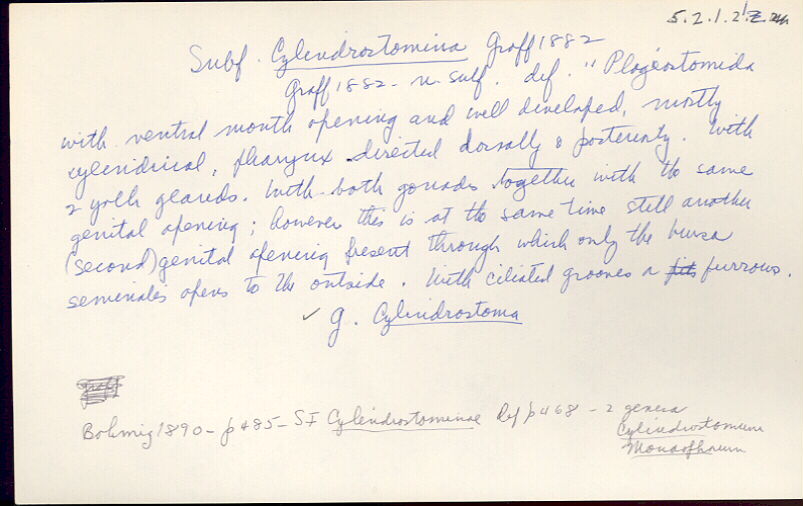 5.2.1.2
Subf. Cylindrostomina Graff 1882
Graff 1882 - n. subf. def. "Plagiostomida
with ventral mouth opening and well developed, mostly
cylindrical, pharynx directed dorsally & posteriorly. With
2 yolk glands. With both gonads together with the same
genital opening; however this is at the same time still another
(second) genital opening present through which only the bursa
seminalis opens to the outside. With ciliated grooves or furrows.
✓ g. Cylindrostoma
Graff
Bohmig 1890 - p 485 - SF Cylindrostominae Def p 468 - 2 genera
Cylindrostoma
Monoophorum